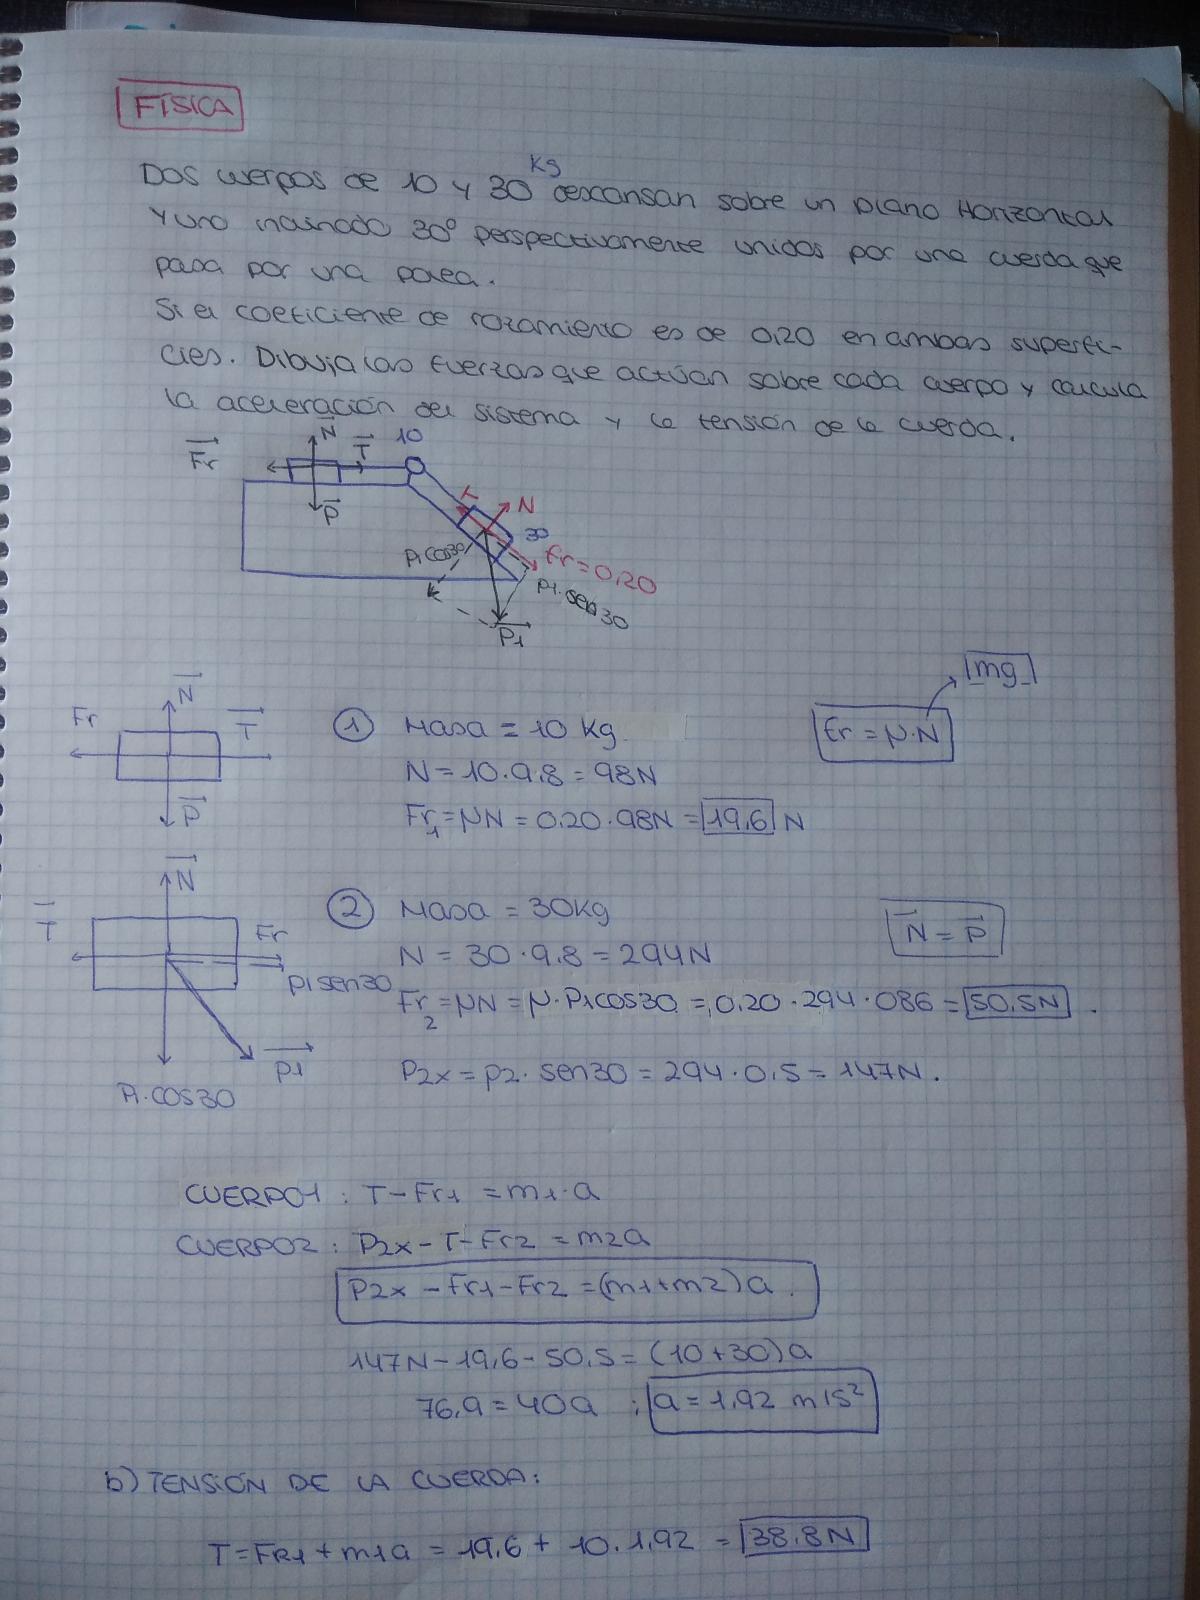 FISICA
Kg
Dos cuerpos de 10 y 30 descansan sobre un plano Horizontal
y uno inclinado 30º perspectivamente unidos por una cuerda que
pasa por una polea.
Si el coeficiente de rozamiento es de 0,20 en ambas superfi-
cies. Dibuja las fuerzas que actúan sobre cada cuerpo y calcula
la aceleración del sistema y la tensión de la cuerda.
Fr N T 10
P
T N
30
P1.cos30
Fr=0,20
P1.sen30
P1
mg
N
Fr T
P
1 Masa = 10 Kg
Fr = μ.N
N = 10.9,8 = 98N
Fr1 = μN = 0,20.98N = 19,6 N
N
T Fr
P1sen30
P1
P1.cos30
2 Masa = 30Kg
N = P
N = 30.9,8 = 294N
Fr2 = μN = μ.P1cos30 = 0,20.294.086 = 50,5N.
P2x = P2.sen30 = 294.0,5 = 147N.
CUERPO1: T-Fr1 = m1.a
CUERPO2: P2x-T-Fr2 = m2a
P2x-Fr1-Fr2 = (m1+m2)a.
147N-19,6-50,5 = (10+30)a
76,9 = 40a ; a = 1,92 m/s²
b) TENSIÓN DE LA CUERDA:
T = FR1 + m1a = 19,6 + 10.1,92 = 38,8N